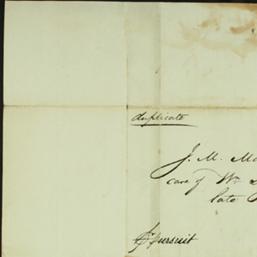 duplicate
J. M.
care of Wm
late
pursuit